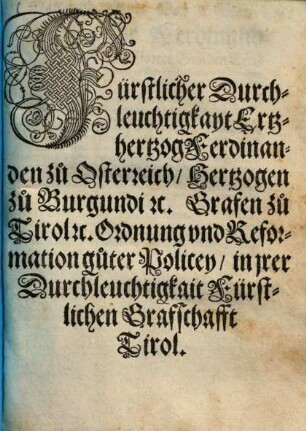 Fürstlicher Durch-
leuchtigkayt Ertz-
hertzog Ferdinan-
den zů Osterreich/ Hertzogen
zů Burgundi ꝛc. Grafen zů
Tirol ꝛc. Ordnung vnd Refor-
mation gůter Policey/ in jrer
Durchleuchtigkait Fürst-
lichen Grafschafft
Tirol.